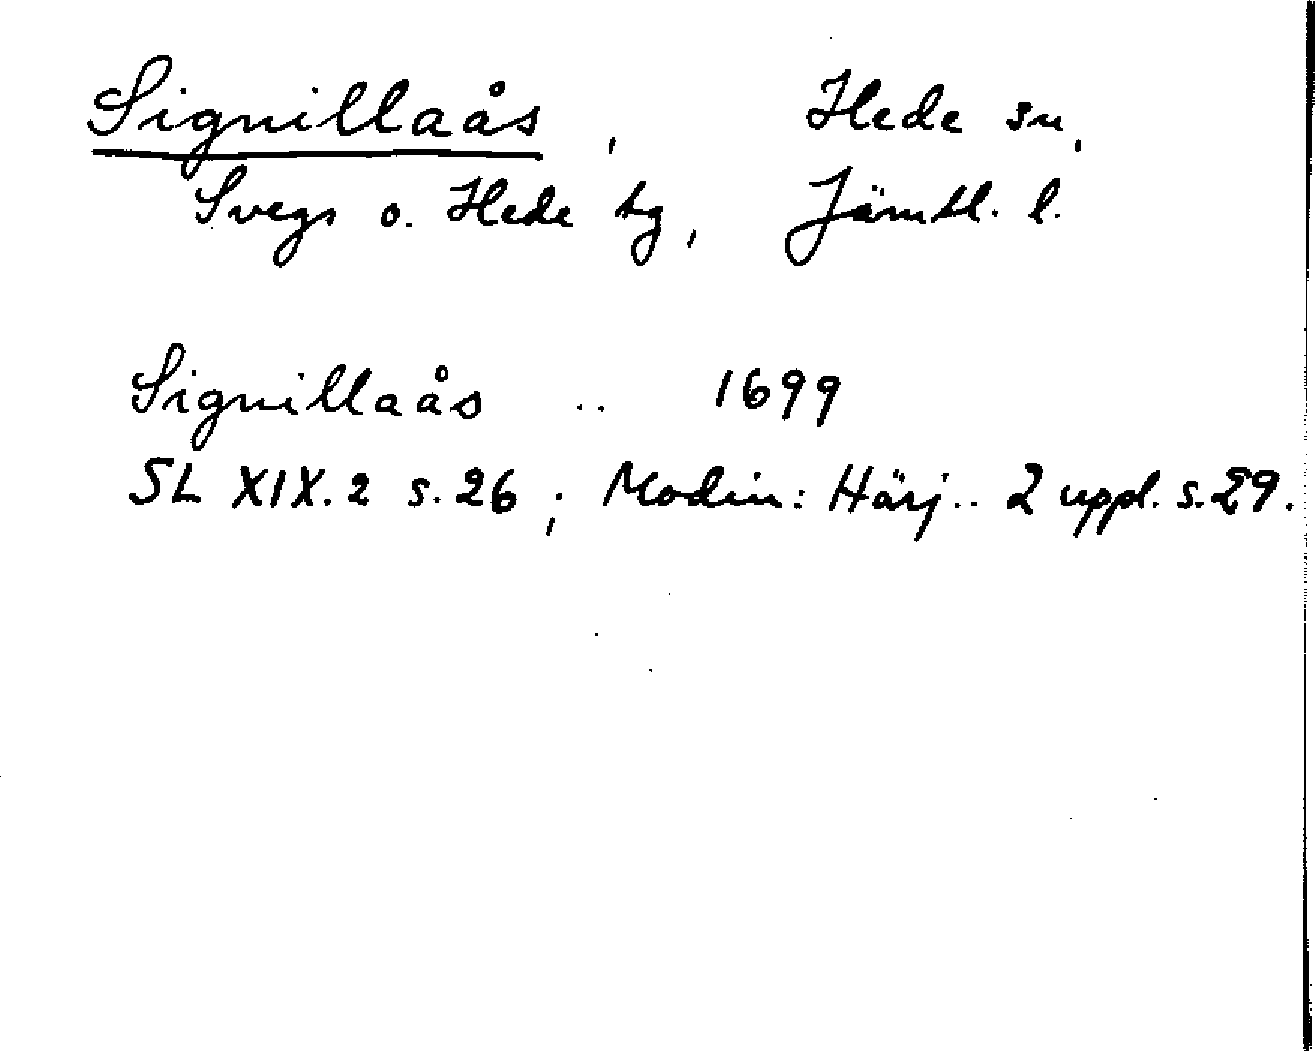 Signillaås, Hede sn,
Svegs o. Hede tg, Jämtl. l.
Signillaås .. 1699
SL XIX.2 s.26; Modin: Härj.. 2 uppl. s.29.